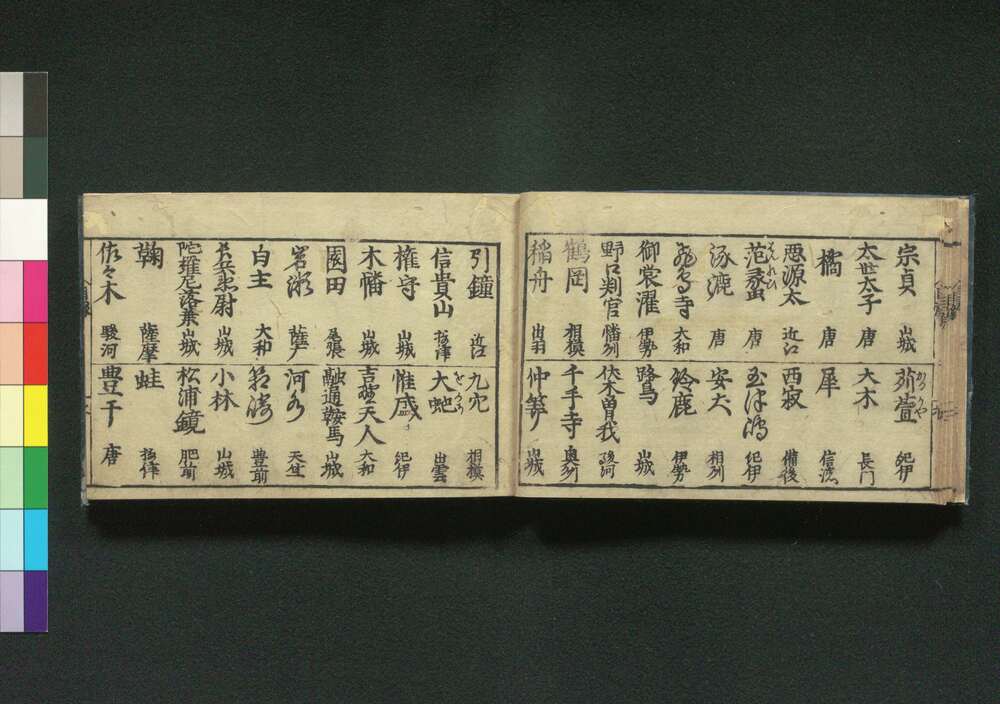 宗貞 山城
太世太子 唐
橘 唐
悪源太 近江
范蠡 唐
はんれい
涿漉 唐
飛鳥寺 大和
御裳濯 伊勢
野口判官 幡州
鶴岡 相模
稲舟 出羽
苅萱 紀伊
かるかや
大木 長門
犀 信濃
西寂 備後
玉津嶋 紀伊
安犬 相州
鈴鹿 伊勢
路鳥 山城
伏木曽我 駿河
千手寺 奥州
仲算 山城
引鐘 近江
信貴山 摂津
権守 山城
木幡 山城
園田 尾張
岩瀬 薩戸
白主 大和
長兵衛尉 山城
陀羅尼落葉 山城
鞠 薩摩
佐々木 駿河
九穴 相模
大虵 出雲
をろち
惟盛 紀伊
吉野天人 大和
融通鞍馬 山城
河水 天竺
豊前
小林 山城
松浦鏡 肥前
蛙 摂津
豊干 唐